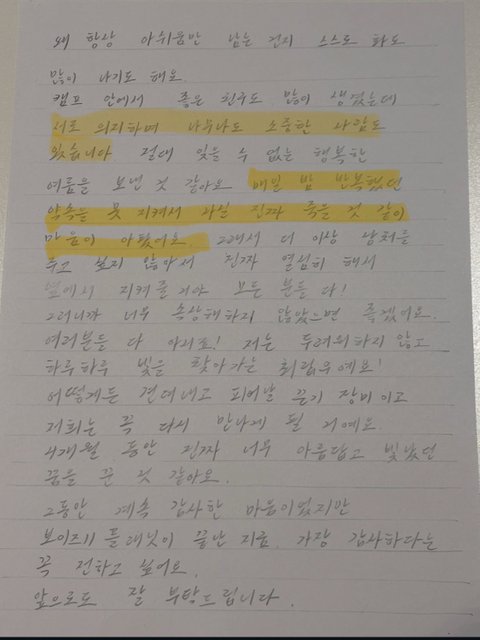 왜 항상 아쉬움만 남는 건지 스스로 화도
많이 나기도 해요.
캠프 안에서 좋은 친구도 많이 생겼는데
서로 의지하며 너무나도 소중한 사람도
있습니다 절대 잊을 수 없는 행복한
여름을 보낸 것 같아요 매일 밤 반복했던
약속을 못 지켜서 사실 진짜 죽을 것 같이
마음이 아팠어요. 그래서 더 이상 상처를
주고 싶지 않아서 진짜 열심히 해서
옆에서 지켜줄거야 모든 분들 다!
그러니까 너무 속상해하지 않았으면 좋겠어요.
여러분들 다 아시죠! 저는 두려워하지 않고
하루하루 빛을 찾아가는 최립우예요!
어떻게든 견뎌내고 피어날 끈기 장미이고
저희는 꼭 다시 만나게 될 거예요.
4개월 동안 진짜 너무 아름답고 빛났던
꿈을 꾼 것 같아요.
그동안 계속 감사한 마음이었지만
보이즈 II 플래닛이 끝난 지금. 가장 감사하다는
꼭 전하고 싶어요.
앞으로도 잘 부탁드립니다.